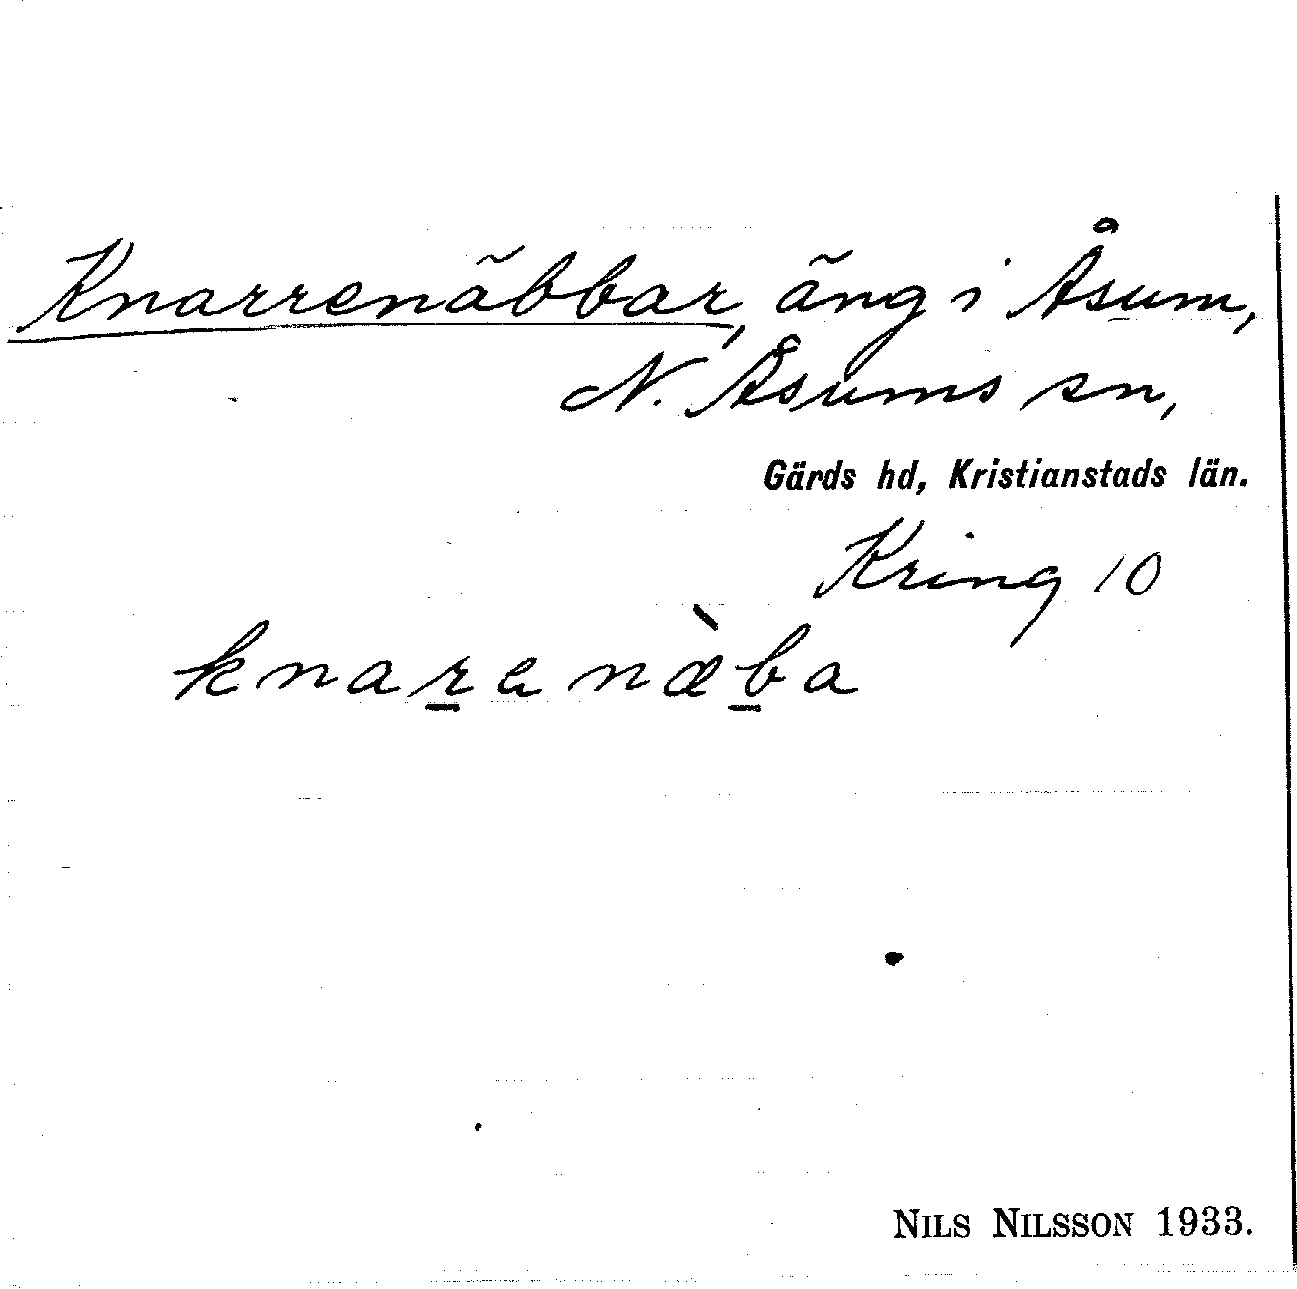 Knarrenäbbar, äng i Åsum,
N. Åsums sn,
Gärds hd, Kristianstads län.
Kring 10
knar̲ენæ̀b̲a
NILS NILSSON 1933.